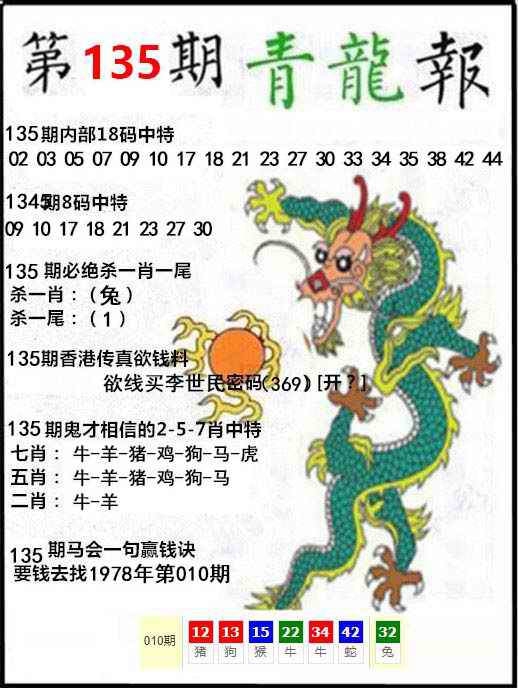 第135期 青龍報
135期内部18码中特
02 03 05 07 09 10 17 18 21 23 27 30 33 34 35 38 42 44
期8码中特
09 10 17 18 21 23 27 30
135 期必绝杀一肖一尾
杀一肖：(兔)
杀一尾：(1)
135期香港传真欲钱料
欲线买李世民密码(369) [开?]
135期鬼才相信的2-5-7肖中特
七肖： 牛-羊-猪-鸡-狗-马-虎
五肖： 牛-羊-猪-鸡-狗-马
二肖： 牛-羊
135期马会一句赢钱诀
要钱去找1978年第010期
010期 12 13 15 22 34 42 32
猪 狗 猴 牛 牛 蛇 兔